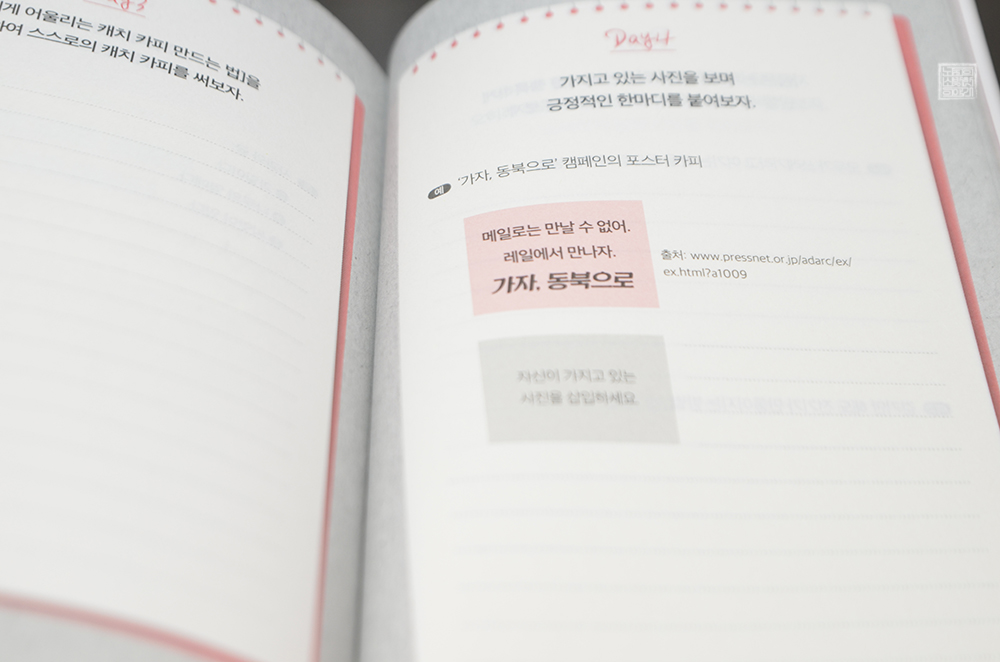 Day3
게 어울리는 캐치 카피 만드는 법]을
하여 스스로의 캐치 카피를 써보자.
Day4
가지고 있는 사진을 보며
긍정적인 한마디를 붙여보자.
예 '가자, 동북으로' 캠페인의 포스터 카피
메일로는 만날 수 없어.
레일에서 만나자.
가자, 동북으로
출처: www.pressnet.or.jp/adarc/ex/
ex.html?a1009
자신이 가지고 있는
사진을 삽입하세요